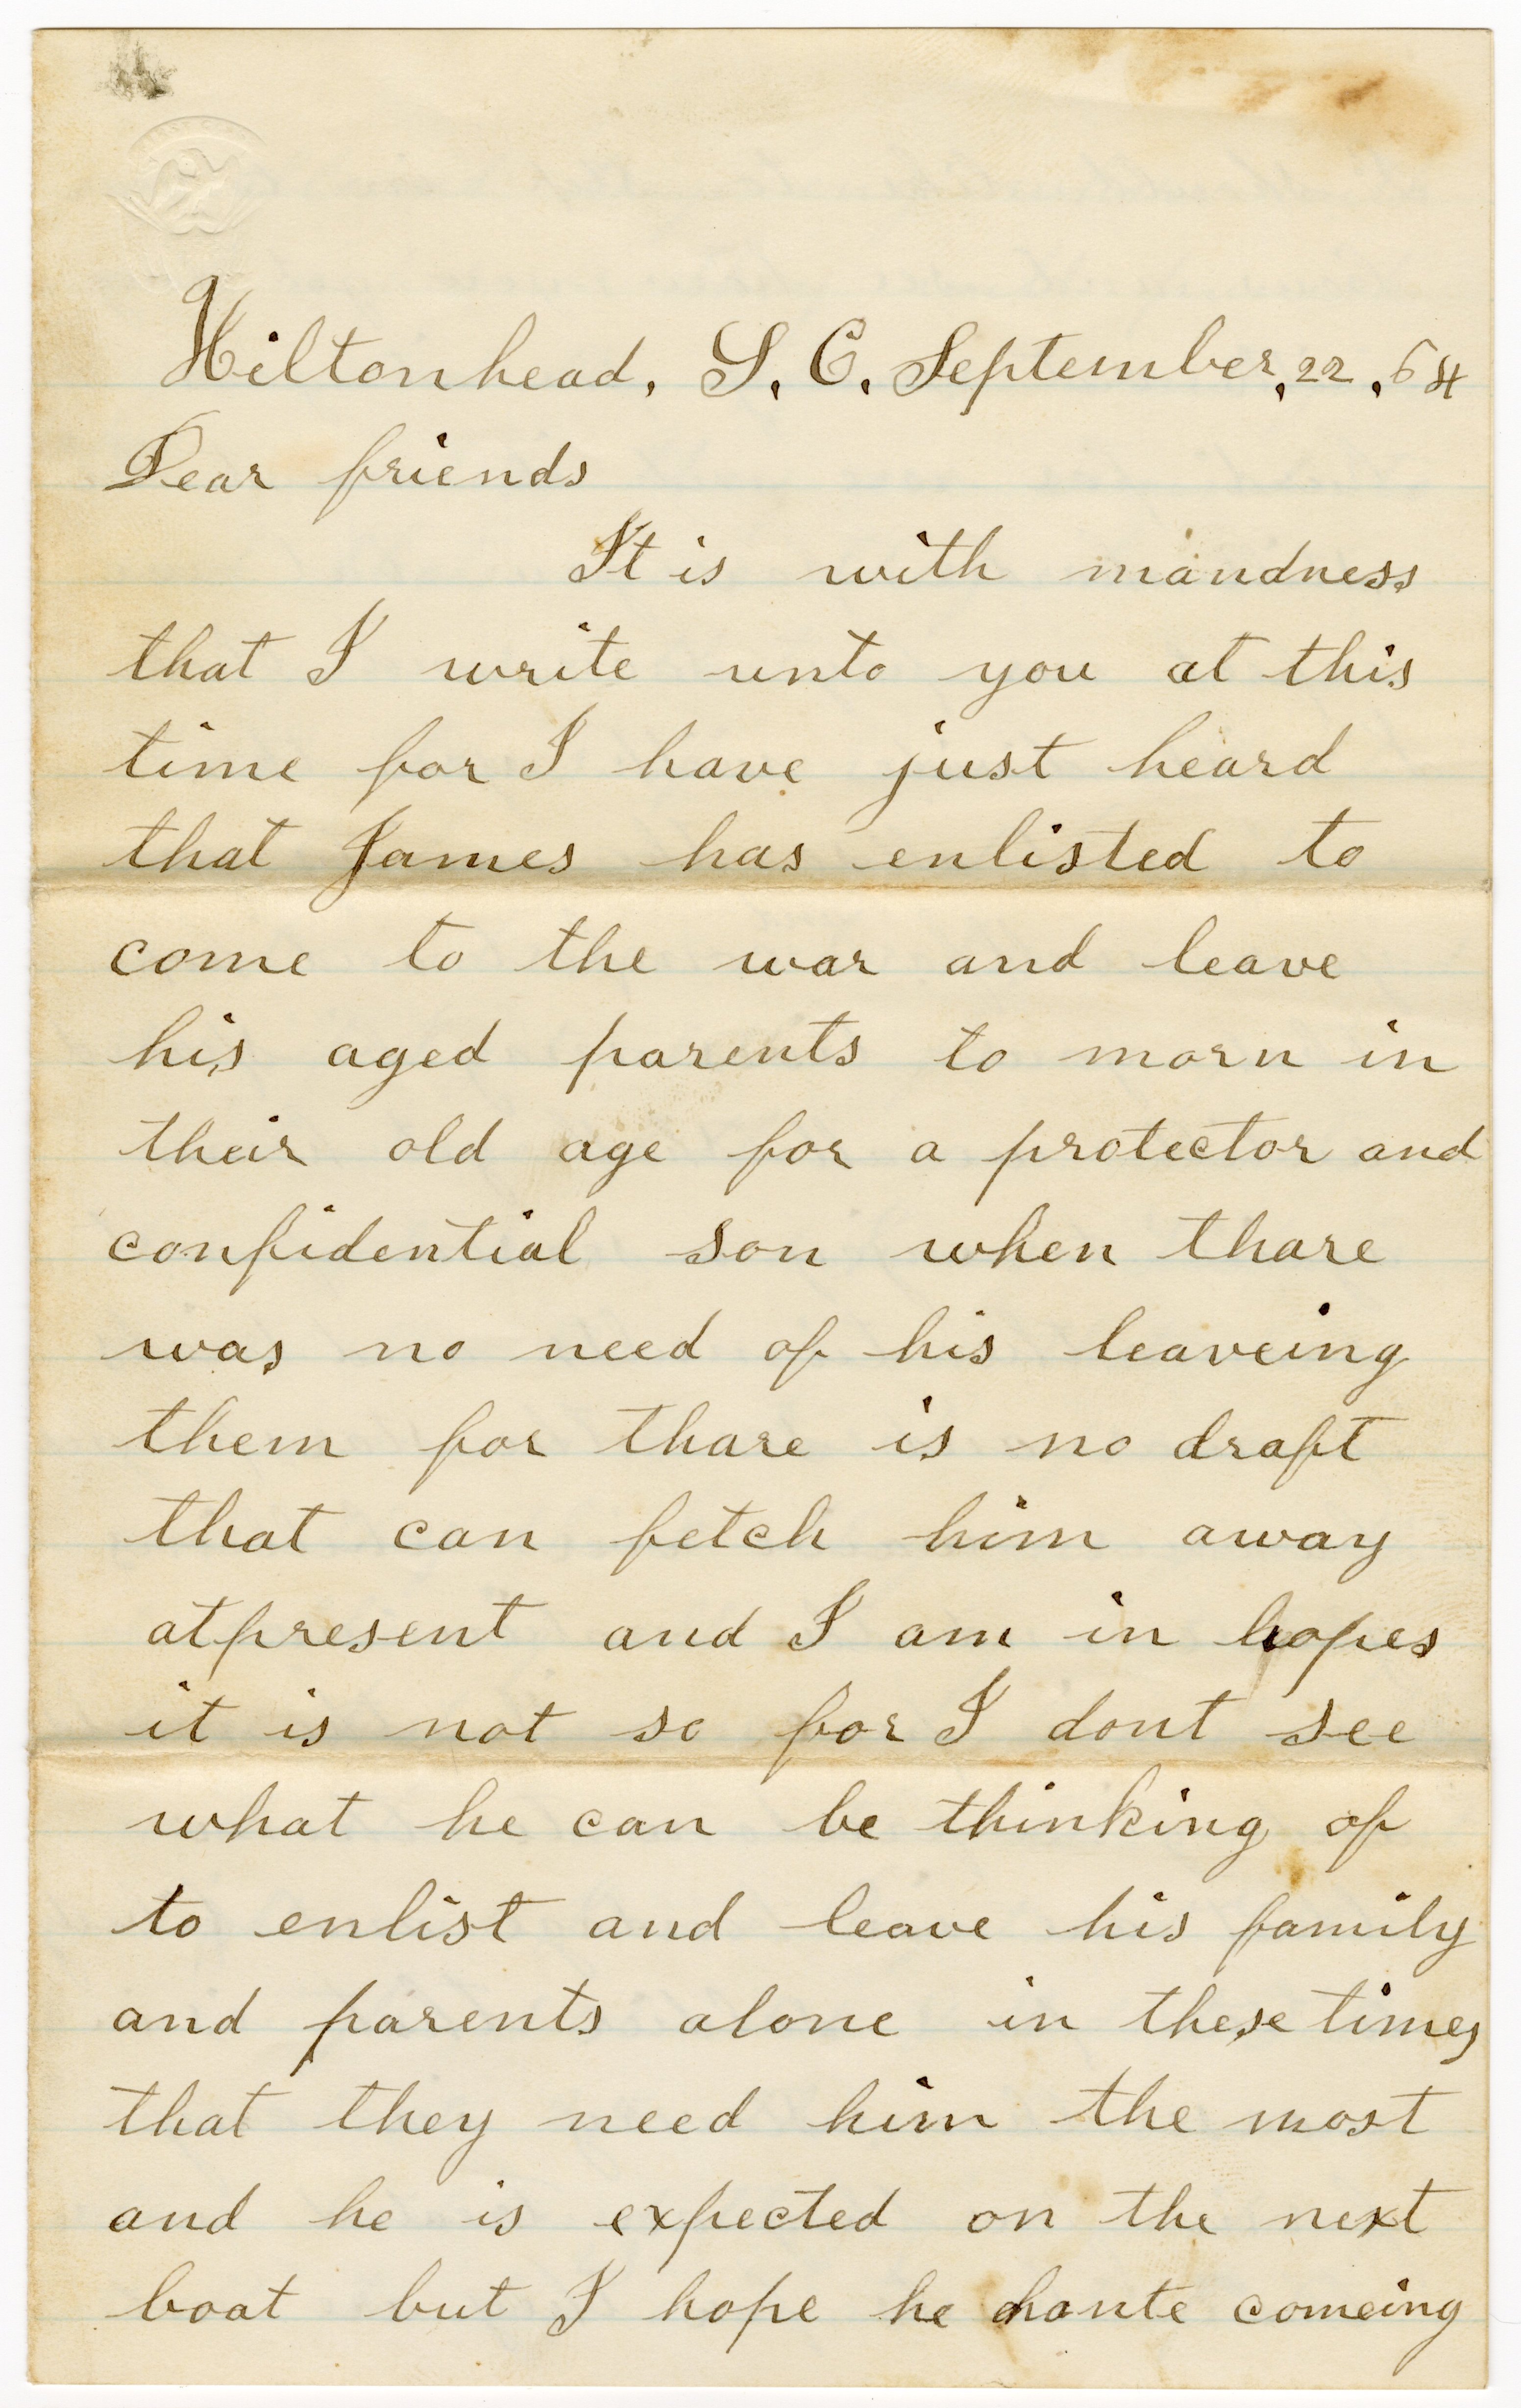 Hiltonhead, S, C, September, 22, 64
Dear friends
It is with mandness
that I write unto you at this
time for I have just heard
that James has enlisted to
come to the war and leave
his aged parents to morn in
their old age for a protector and
confidential son when thare
was no need of his leaveing
them for thare is no draft
that can fetch him away
atpresent and I am in hopes
it is not so for I dont see
what he can be thinking of
to enlist and leave his family
and parents alone in these times
that they need him the most
and he is expected on the next
boat but I hope he hante comeing